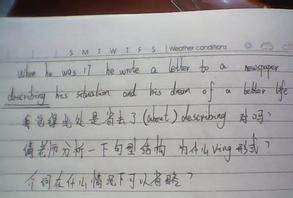 S M T W T F S Weather conditions
when he was 17 he wrote a letter to a newspaper
describing his situation and his dream of a better life
是省去了(about) describing 对吗?
请老师分析一下句型结构 为什么 ving 形式?
介词在什么情况下可以省略?